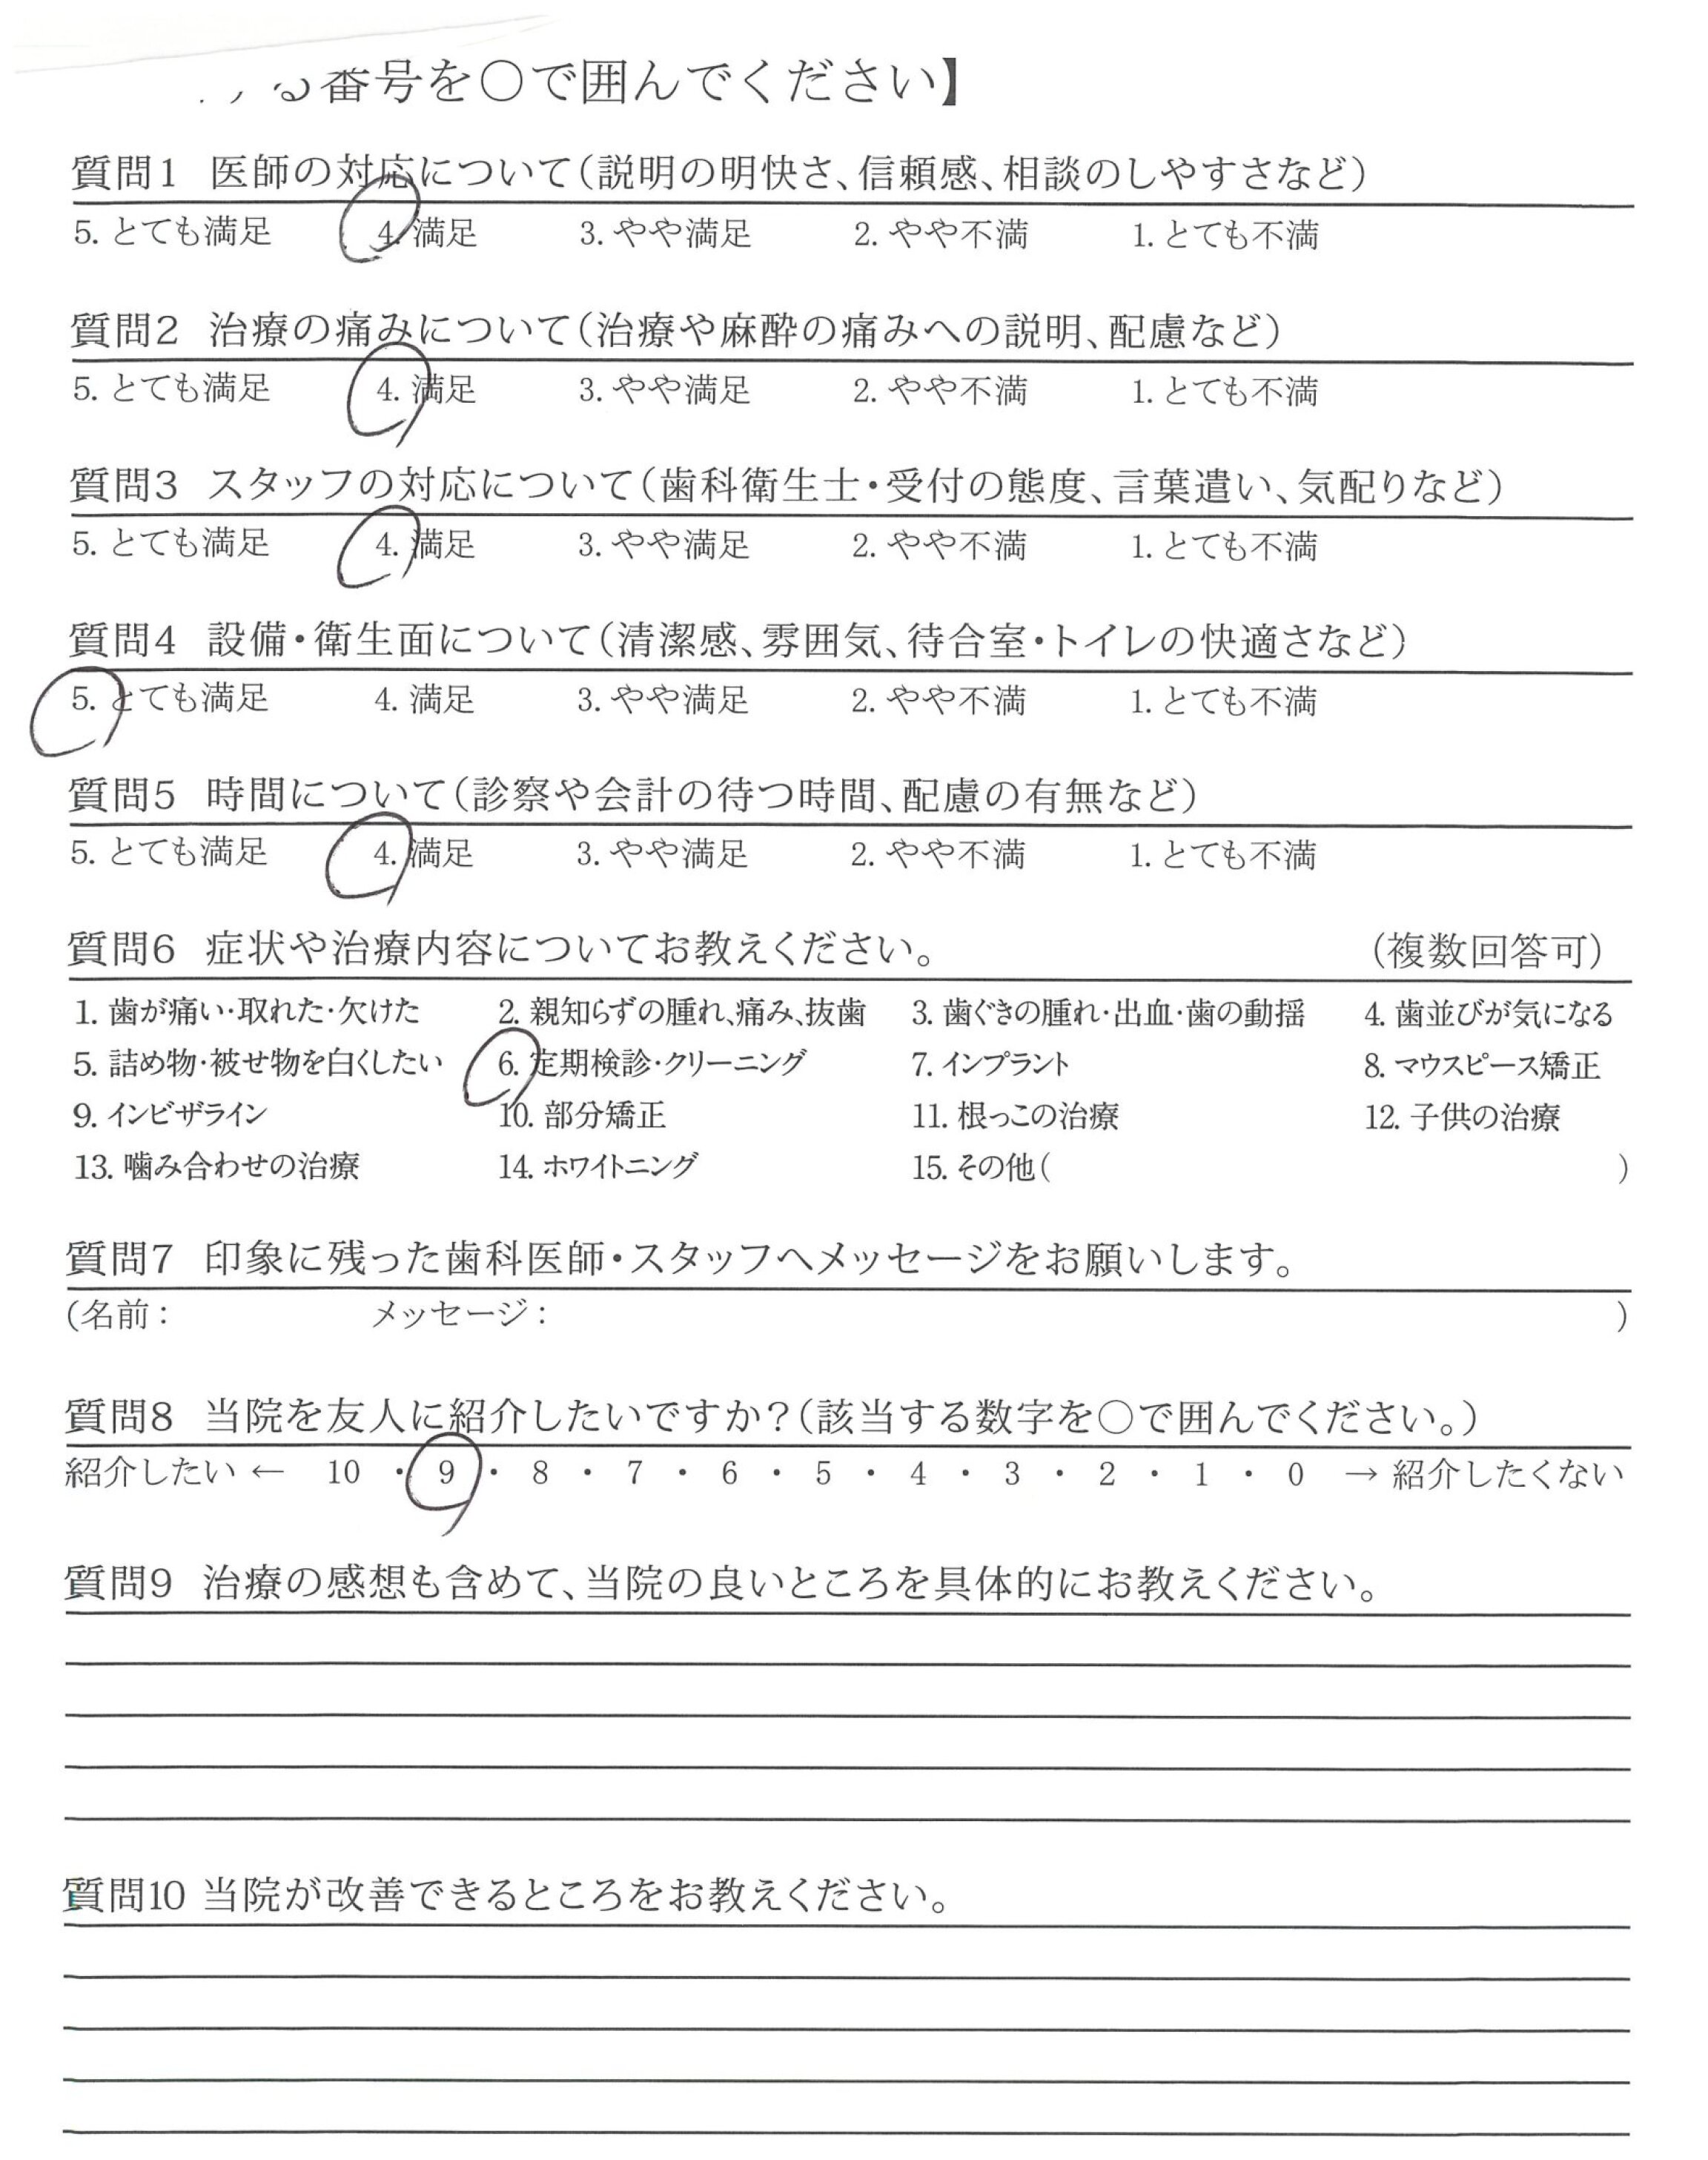 る番号を〇で囲んでください】
質問1 医師の対応について（説明の明快さ、信頼感、相談のしやすさなど）
5. とても満足 4. 満足 3. やや満足 2. やや不満 1. とても不満
質問2 治療の痛みについて（治療や麻酔の痛みへの説明、配慮など）
5. とても満足 4. 満足 3. やや満足 2. やや不満 1. とても不満
質問3 スタッフの対応について（歯科衛生士・受付の態度、言葉遣い、気配りなど）
5. とても満足 4. 満足 3. やや満足 2. やや不満 1. とても不満
質問4 設備・衛生面について（清潔感、雰囲気、待合室・トイレの快適さなど）
5. とても満足 4. 満足 3. やや満足 2. やや不満 1. とても不満
質問5 時間について（診察や会計の待つ時間、配慮の有無など）
5. とても満足 4. 満足 3. やや満足 2. やや不満 1. とても不満
質問6 症状や治療内容についてお教えください。 （複数回答可）
1. 歯が痛い・取れた・欠けた 2. 親知らずの腫れ、痛み、抜歯 3. 歯ぐきの腫れ・出血・歯の動揺 4. 歯並びが気になる
5. 詰め物・被せ物を白くしたい 6. 定期検診・クリーニング 7. インプラント 8. マウスピース矯正
9. インビザライン 10. 部分矯正 11. 根っこの治療 12. 子供の治療
13. 噛み合わせの治療 14. ホワイトニング 15. その他（ ）
質問7 印象に残った歯科医師・スタッフへメッセージをお願いします。
（名前： メッセージ： ）
質問8 当院を友人に紹介したいですか？（該当する数字を〇で囲んでください。）
紹介したい ← 10 ・ 9 ・ 8 ・ 7 ・ 6 ・ 5 ・ 4 ・ 3 ・ 2 ・ 1 ・ 0 → 紹介したくない
質問9 治療の感想も含めて、当院の良いところを具体的にお教えください。
質問10 当院が改善できるところをお教えください。